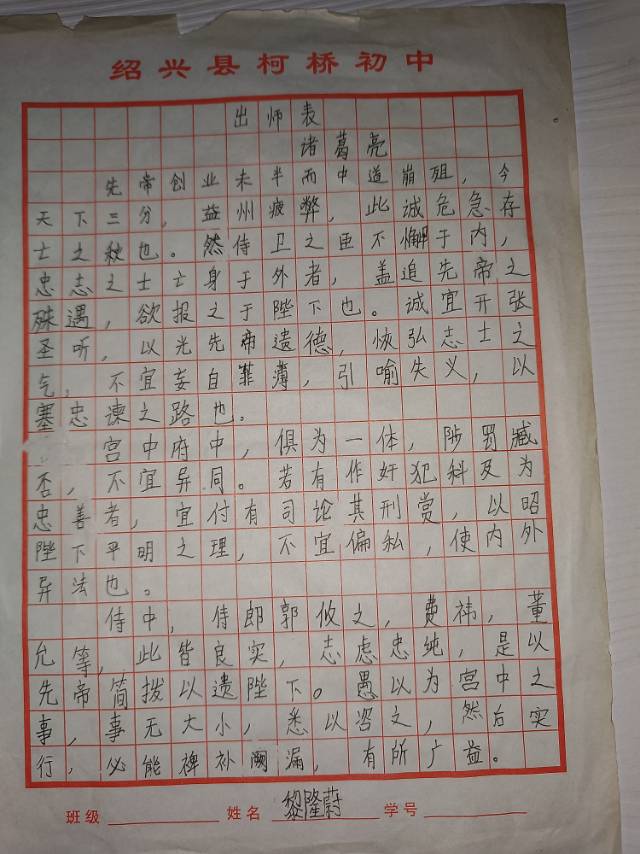 绍兴县柯桥初中
出师表
诸葛亮
先帝创业未半而中道崩殂，今
天下三分，益州疲弊，此诚危急存
亡之秋也。然侍卫之臣不懈于内，
忠志之士亡身于外者，盖追先帝之
殊遇，欲报之于陛下也。诚宜开张
圣听，以光先帝遗德，恢弘志士之
气，不宜妄自菲薄，引喻失义，以
塞忠谏之路也。
宫中府中，俱为一体，陟罚臧
否，不宜异同。若有作奸犯科及为
忠善者，宜付有司论其刑赏，以昭
陛下平明之理，不宜偏私，使内外
异法也。
侍中，侍郎郭攸之，费祎，董
允等，此皆良实，志虑忠纯，是以
先帝简拨以遗陛下。愚以为宫中之
事，事无大小，悉以咨之，然后实
行，必能裨补阙漏，有所广益。
班级 姓名 黎隆蔚 学号